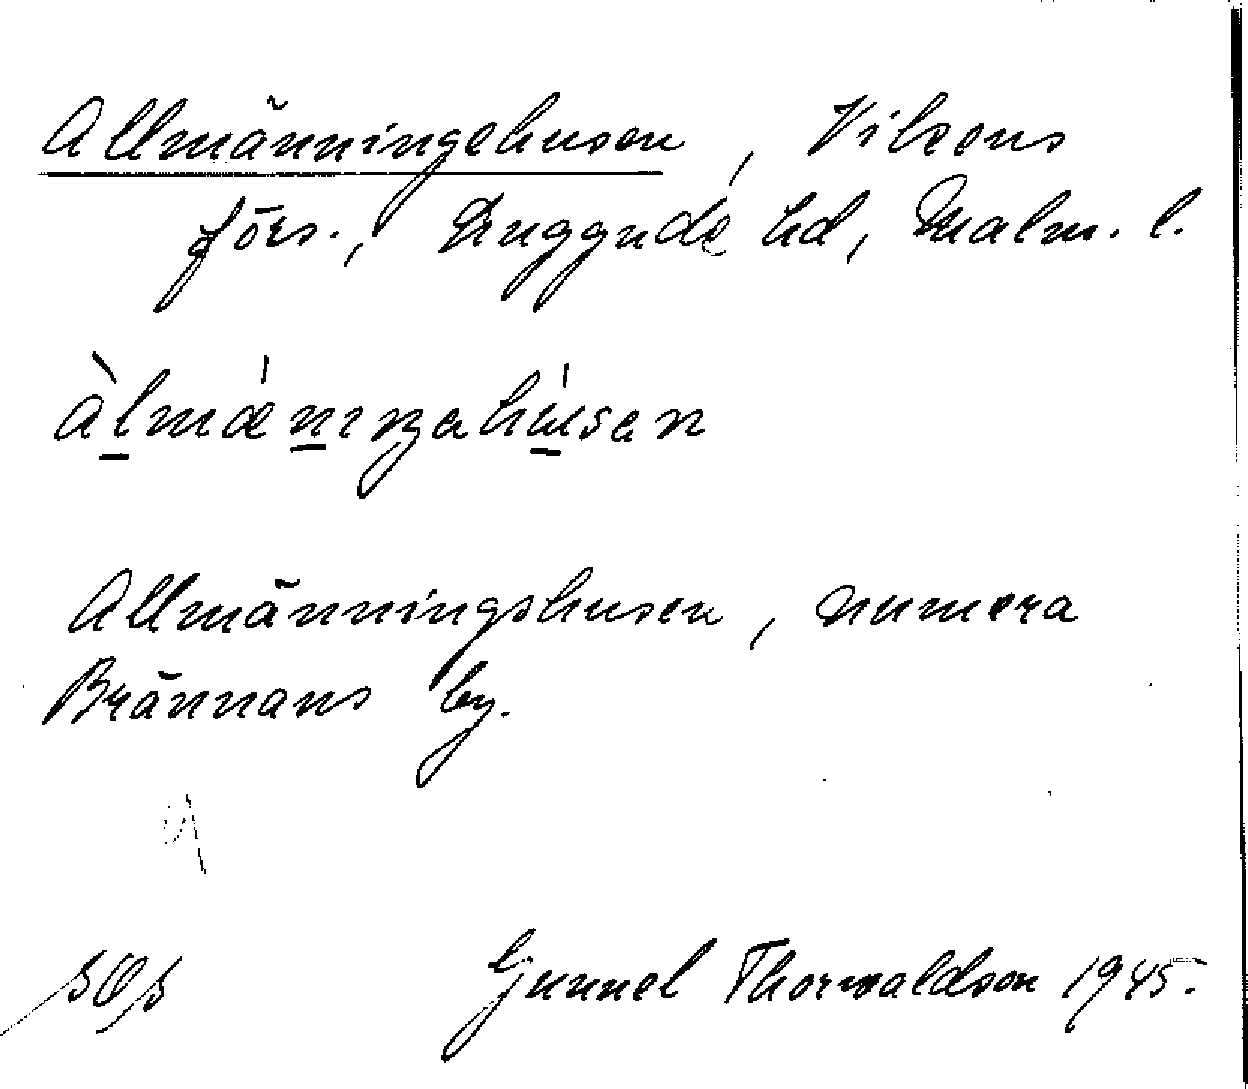 Allmänningehusen, Vilsens
förs., Luggude hd, Malm. l.
àlmánıŋahúsan
Allmänningshusen, numera
Brännans by.
Gunnel Thorwaldson 1945.